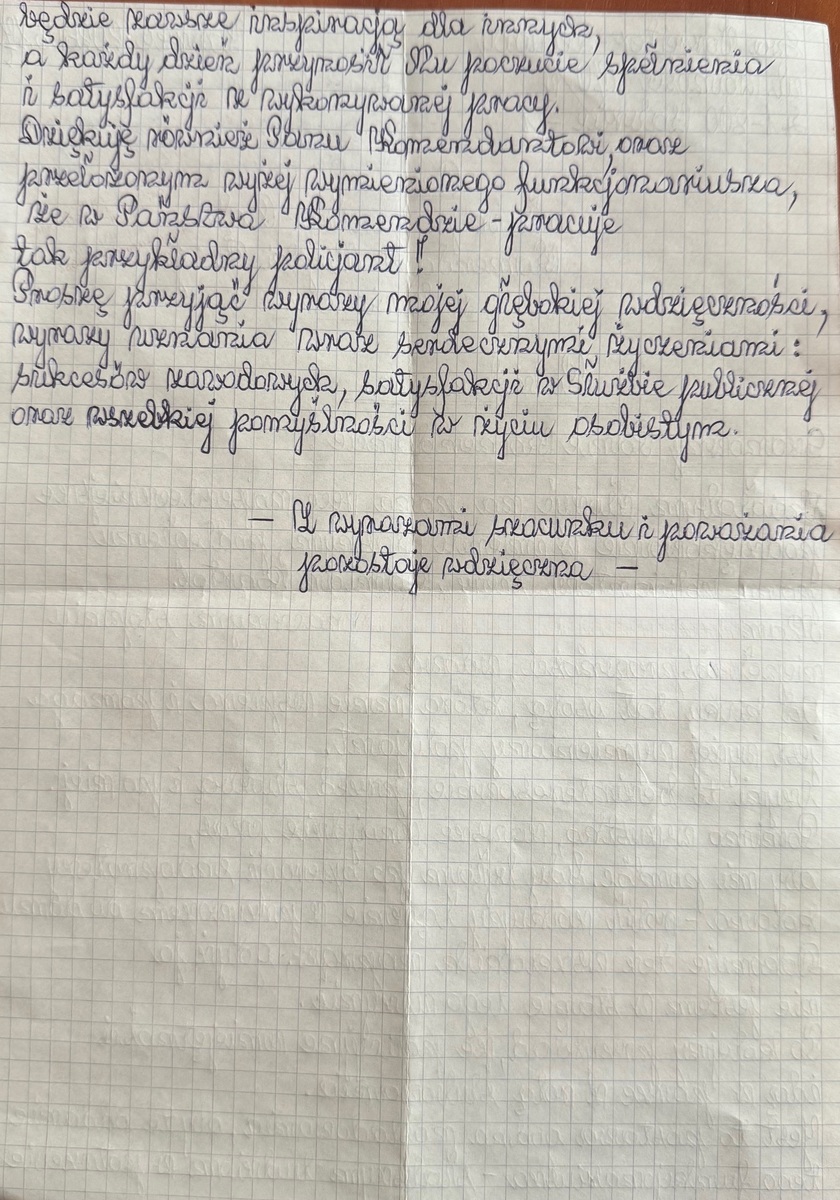 będzie zawsze inspiracją dla innych,
a każdy dzień przynosił Mu poczucie spełnienia
i satysfakcji z wykonywanej pracy.
Dziękuję również Panu Komendantowi, oraz
przełożonym wyżej wymienionego funkcjonariusza,
że w Państwa Komendzie - pracuje
tak przykładny policjant!
Proszę przyjąć wyrazy mojej głębokiej wdzięczności,
wyrazy uznania wraz serdecznymi życzeniami:
sukcesów zawodowych, satysfakcji w Służbie publicznej
oraz wszelkiej pomyślności w życiu osobistym.
— Z wyrazami szacunku i poważania
pozostaje wdzięczna —